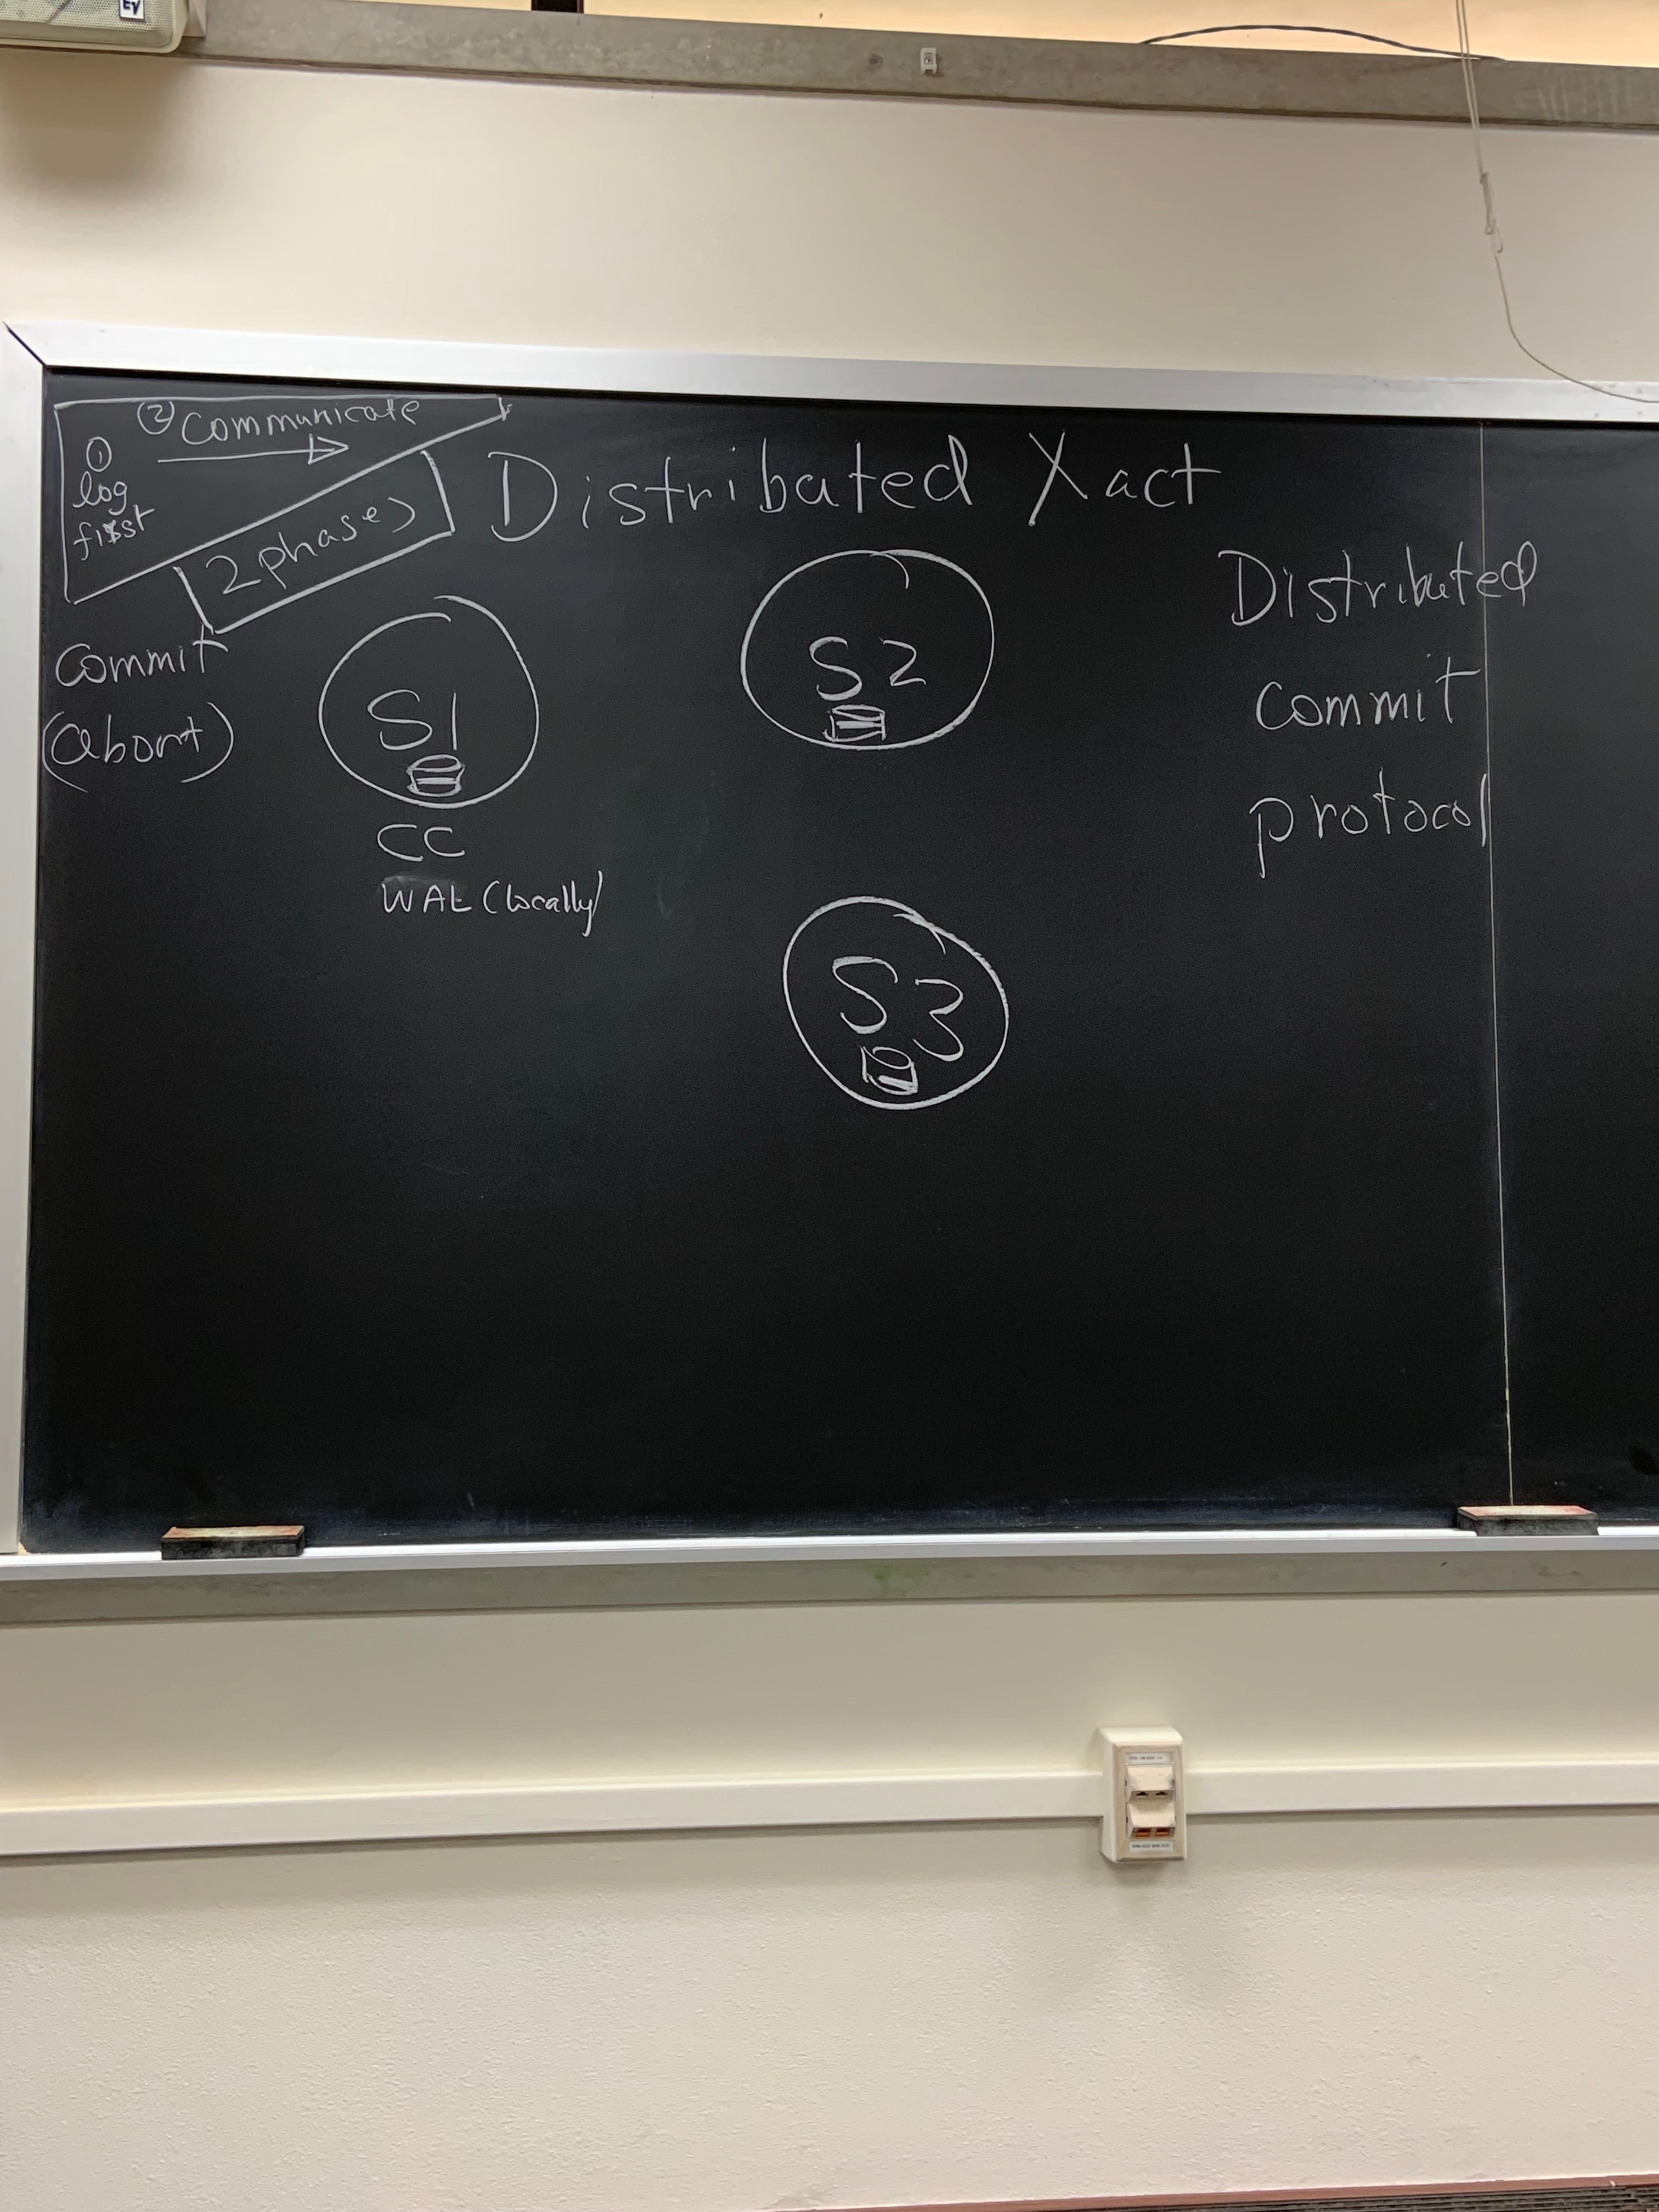 EV
② Communicate
①
log
first
2 phases
Distributed Xact
Commit
(abort)
S1
CC
WAL (locally)
S2
S3
Distributed
commit
protocol